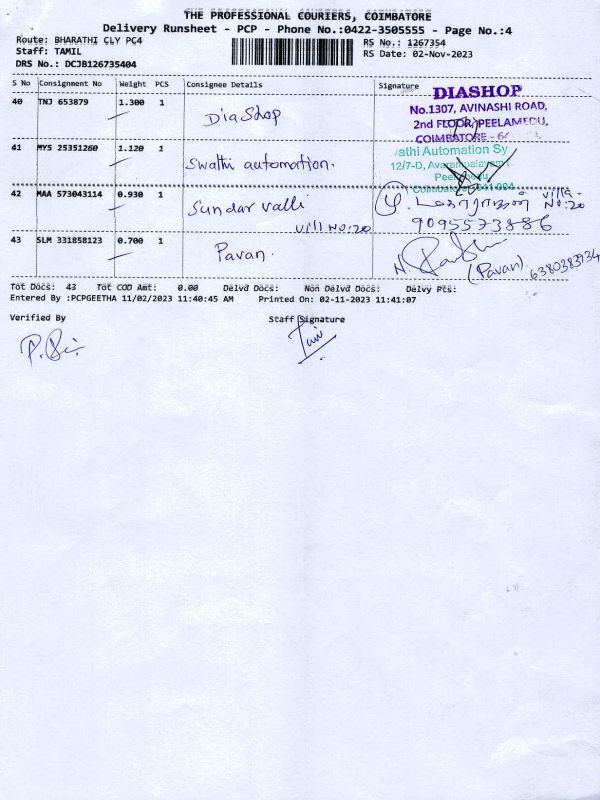 THE PROFESSIONAL COURIERS, COIMBATORE
Delivery Runsheet - PCP - Phone No.:0422-3505555 - Page No.:4
Route: BHARATHI CLY PC4
RS No.: 1267354
Staff: TAMIL
RS Date: 02-Nov-2023
DRS No.: DCJB126735404
S No Consignment No Weight PCS Consignee Details Signature
40 TNJ 653879 1.300 1 DiaShop
DIASHOP
No.1307, AVINASHI ROAD,
2nd FLOOR, PEELAMEDU,
COIMBATORE - 
41 MYS 25351260 1.120 1 Swathi automation.
athi Automation Sy
12/7-D, Avarampalayam
Coimbatore 641 004
42 MAA 573043114 0.930 1 Sundar valli
Vill No:20
Villa
No:20
9095573886
43 SLM 331858123 0.700 1 Pavan.
(Pavan) 6380383934
Tot Docs: 43 Tot COD Amt: 0.00 Delvd Docs: Non Delvd Docs: Delvy Pts:
Entered By :PCPGEETHA 11/02/2023 11:40:45 AM Printed On: 02-11-2023 11:41:07
Verified By Staff Signature